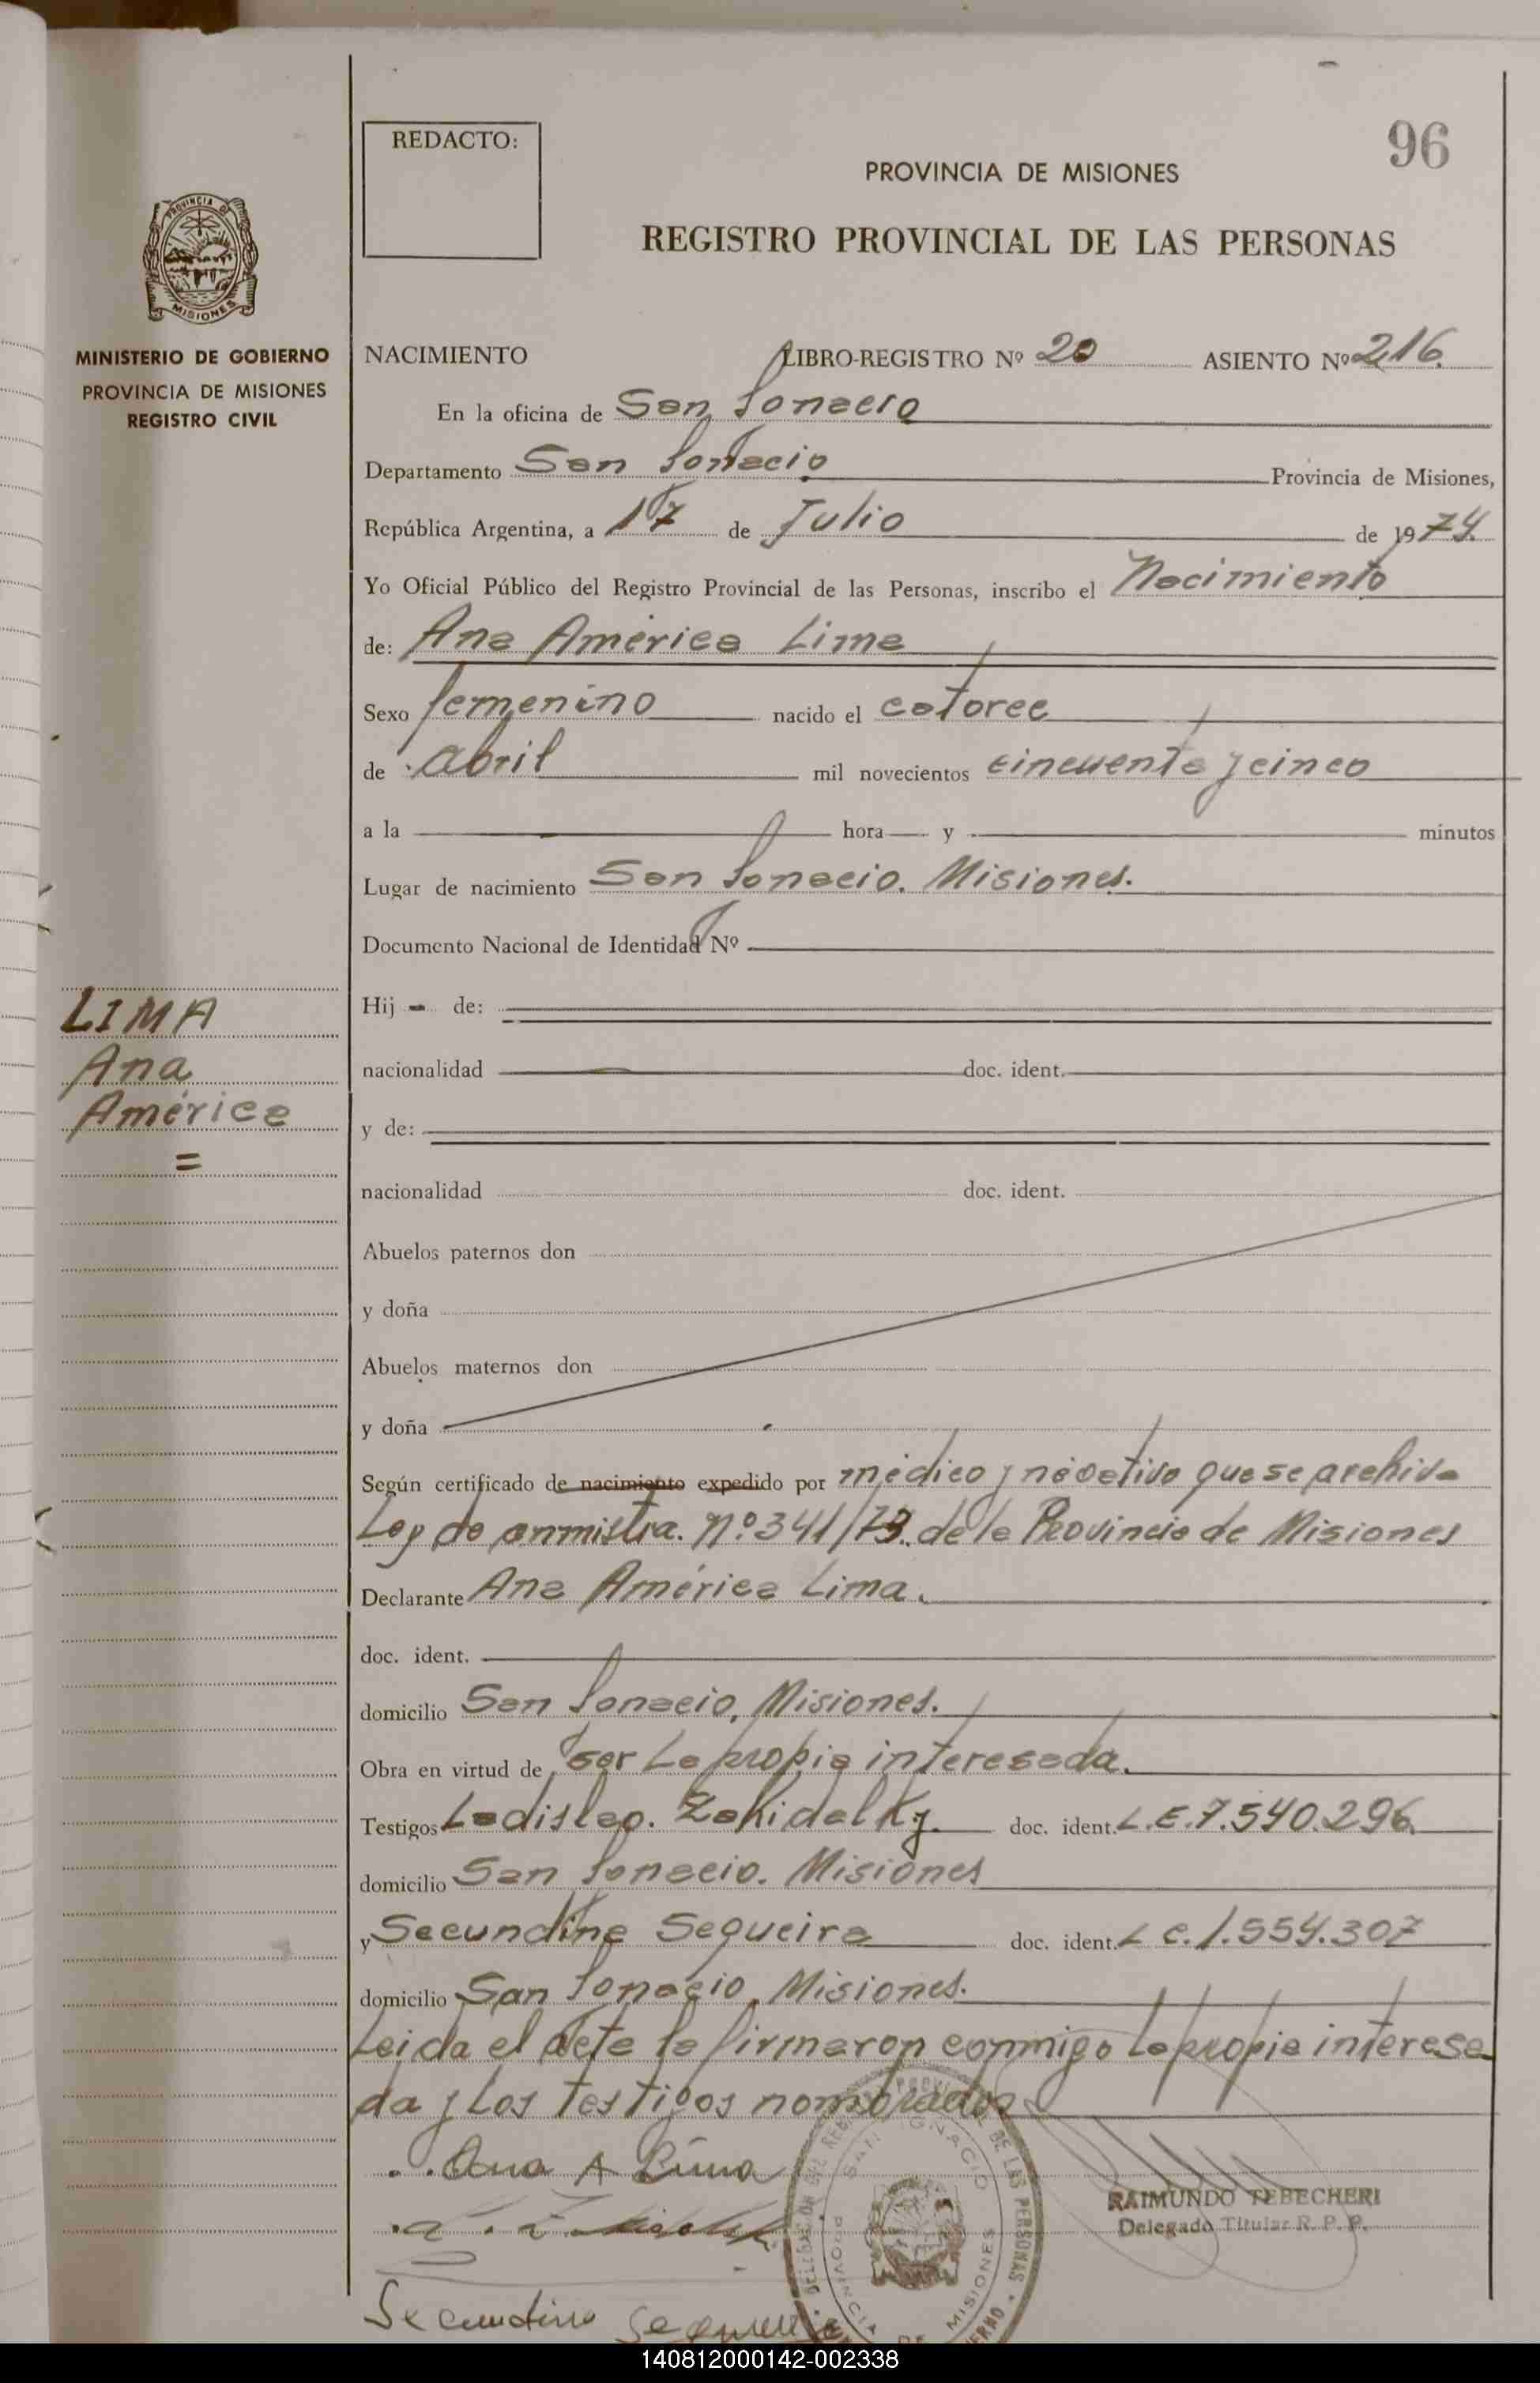 96
REDACTO:
PROVINCIA DE MISIONES
REGISTRO PROVINCIAL DE LAS PERSONAS
PROVINCIA DE
MISIONES
MINISTERIO DE GOBIERNO
PROVINCIA DE MISIONES
REGISTRO CIVIL
NACIMIENTO LIBRO-REGISTRO Nº 20 ASIENTO Nº 216.
En la oficina de San Ignacio
Departamento San Ignacio Provincia de Misiones,
República Argentina, a 17 de Julio de 1974.
Yo Oficial Público del Registro Provincial de las Personas, inscribo el Nacimiento
de: Ana América Lima
Sexo femenino nacido el catorce
de abril mil novecientos cincuenta y cinco
a la hora y minutos
Lugar de nacimiento San Ignacio. Misiones.
Documento Nacional de Identidad Nº
LIMA
Ana
América
=
Hij - de:
nacionalidad doc. ident.
y de:
nacionalidad doc. ident.
Abuelos paternos don
y doña
Abuelos maternos don
y doña
Según certificado de nacimiento expedido por médico y negativo que se archiva
Ley de anmistia. Nº 341/73. de la Provincia de Misiones
Declarante Ana América Lima.
doc. ident.
domicilio San Ignacio, Misiones.
Obra en virtud de ser la propia interesada.
Testigos Ladislao. Zahidalky. doc. ident. L.E. 7.540.296.
domicilio San Ignacio. Misiones
y Secundina Sequeira doc. ident. L C. 1.554.307
domicilio San Ignacio, Misiones.
Leida el acta la firmaron conmigo la propia interesa
da y los testigos nombrados
Ana A Lima
RAIMUNDO TEBECHERI
Delegado Titular R. P. P.
SAN IGNACIO
PROVINCIA DE MISIONES
DE LAS PERSONAS
Secundina Sequeira
140812000142-002338